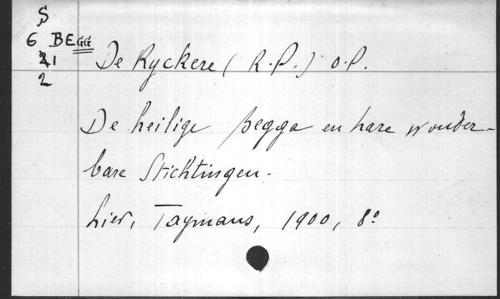 S
6 BEGG
21
2
De Ryckere (R.P.) O.P.
De heilige Begga en hare wonder-
bare Stichtingen.
Lier, Taymans, 1900, 8º